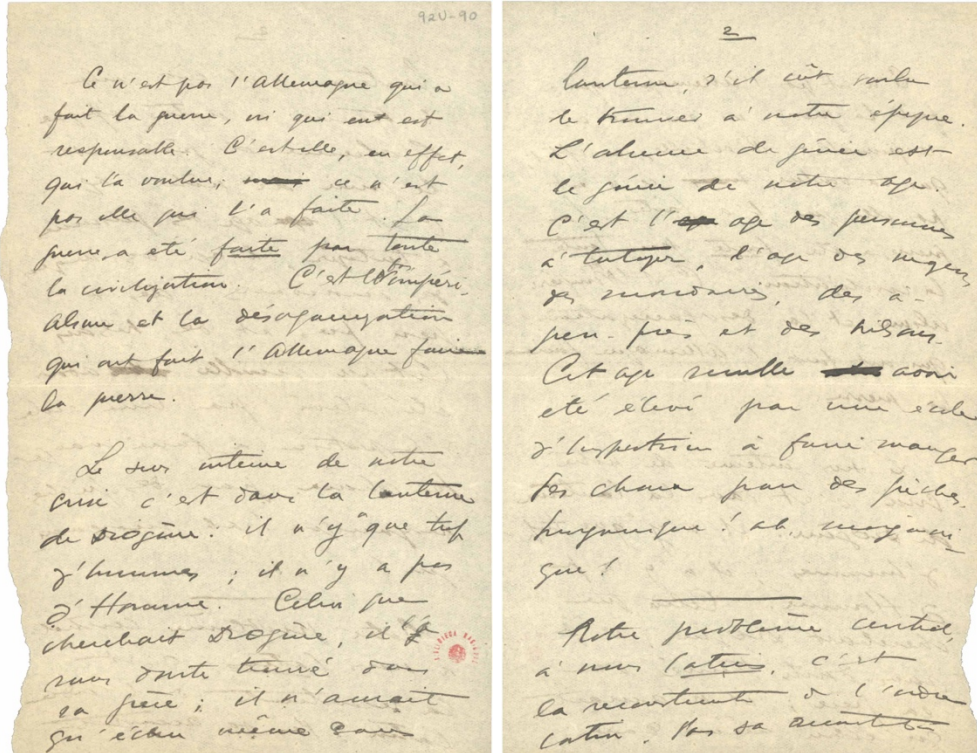 92U-90
Ce n'est pas l'Allemagne qui a
fait la guerre, ni qui ent est
responsable. C'est elle, en effet,
qui l'a voulue; mais ce n'est
pas elle qui l'a faite. La
guerre a eté faite par toute
la civilization. C'est l'impéri-
alisme et la désorganization
qui ont fait l'Allemagne faire
la guerre.
Le sens interne de notre
crise c'est dans la lanterne
de Diogène: il n'y a que trop
d'hommes; il n'y a pas
d'Homme. Celui que
cherchait Diogène, il l'a
sans doute trouvé dans
sa Grèce; il n'aurait
qu'échu même sans
2
lanterne, s'il eût voulu
le trouver à notre époque.
L'absence de génie est
le génie de notre age.
C'est l' age des personnes
à tutoyer, l'age des
des mondaines, des à-
peu-près et des
Cet age semble avoir
eté élevé par une école
à faire manger
des choux pour des pêches.
hurganique! ah, morgani-
que!
Notre problème central,
à nous latins, c'est
la reconstruct de l'ordre
latin. Pas sa